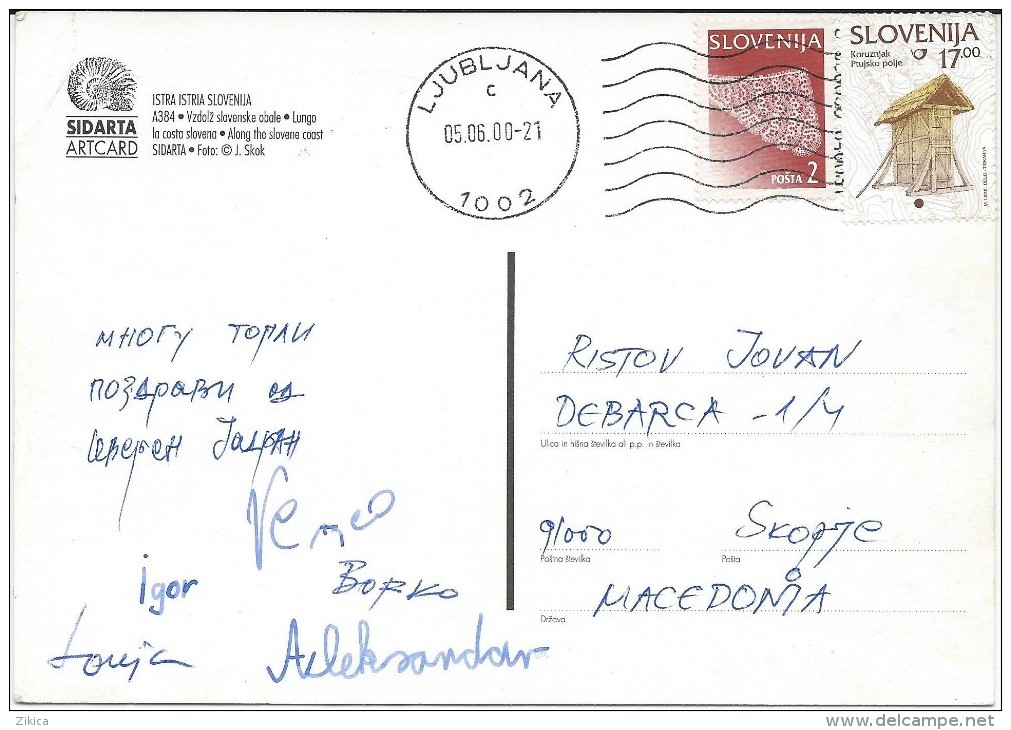 SIDARTA
ARTCARD
ISTRA ISTRIA SLOVENIJA
A384 • Vzdolž slovenske obale • Lungo
la costa slovena • Along the slovene coast
SIDARTA • Foto: © J. Skok
LJUBLJANA
c
05.06.00-21
1002
SLOVENIJA
POŠTA 2
SLOVENIJA
Koruznjak
Ptujsko polje
17.00
многу топли
поздрави од
северен Јадран
Igor
Borko
Aleksandar
RISTOV JOVAN
DEBARCA -1/4
Ulica in hišna številka ali p.p. in številka
91000 Skopje
Poštna številka Pošta
MACEDONIA
Država
Zikica
delcampe.net